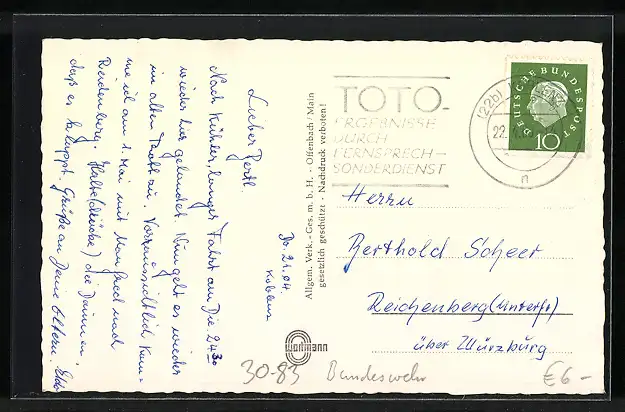 Do. 21.04.
Koblenz
Lieber Portl.
Nach kühler, langer Fahrt am Die 24 30
wieder hier gelandet. Nun geht es wieder
im alten Trott zu. Voraussichtlich kom-
me ich am 1. Mai mit Manfred nach
Reichenberg. Halte die Daumen,
daß es klappt. Grüße an Deine Eltern.
Allgem. Verk.-Ges. m. b. H. - Offenbach / Main
gesetzlich geschützt - Nachdruck verboten!
wortmann
TOTO-
ERGEBNISSE
DURCH
FERNSPRECH-
SONDERDIENST
(22b)
22.
n
DEUTSCHE BUNDESPOST
10
Herrn
Berthold Scheer
Reichenberg (Unterfr.)
über Würzburg
30-83 Bundeswehr €6-